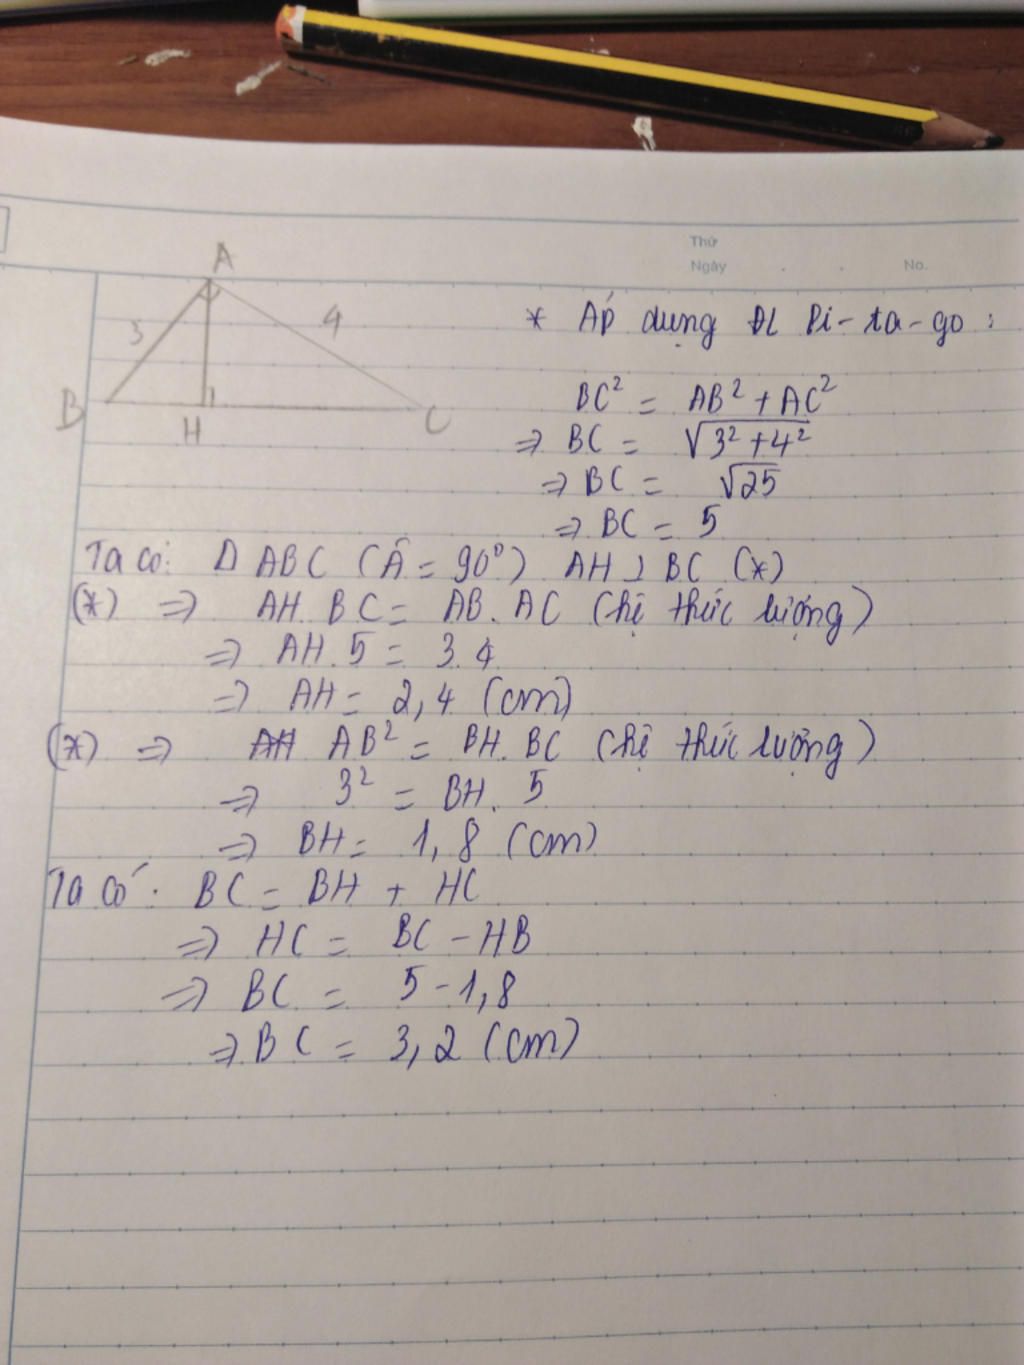 Thứ
Ngày . . No.
A
3
4
B
H
C
* ÁP dụng ĐL Pi-ta-go:
BC² = AB² + AC²
=> BC = √3² + 4²
=> BC = √25
=> BC = 5
Ta có: Δ ABC (Â = 90°) AH ⊥ BC (*)
(*) => AH. BC = AB. AC (hệ thức lượng)
=> AH. 5 = 3. 4
=> AH = 2,4 (cm)
(*) => AH AB² = BH. BC (hệ thức lượng)
=> 3² = BH. 5
=> BH = 1,8 (cm)
Ta có: BC = BH + HC
=> HC = BC - HB
=> BC = 5 - 1,8
=> BC = 3,2 (cm)